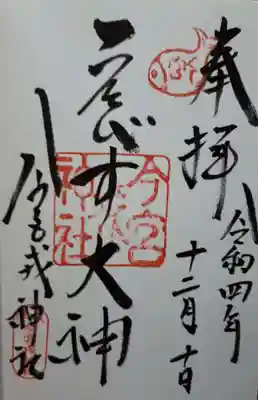 奉拝
令和四年
十二月十日
ゑびす大神
今宮
神社
今宮戎神社